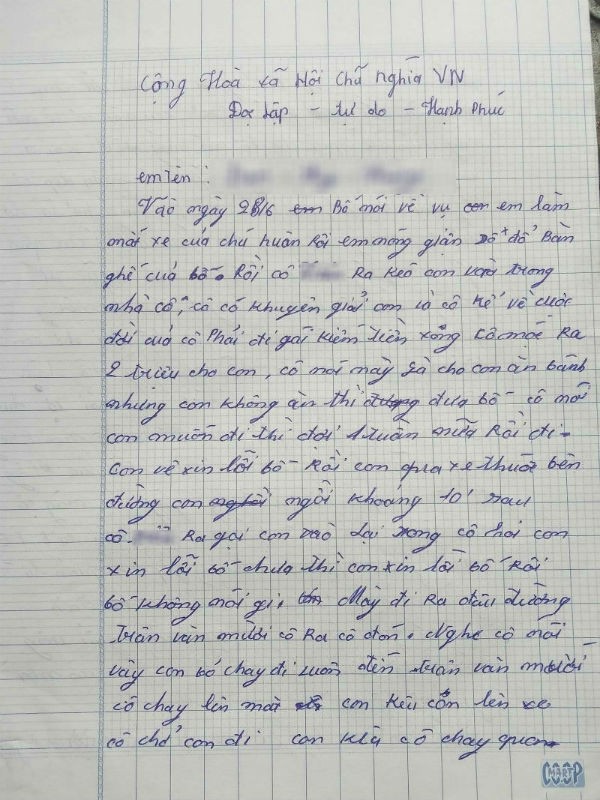 Cộng Hoà Xã Hội Chủ Nghĩa VN
Độc Lập - Tự do - Hạnh Phúc
em Tên :
Vào ngày 28/6 Bố nói về vụ em làm
mất xe của chú huân Rồi em nóng giận xô đổ Bàn
ghế của bố. Rồi cô Ra kéo con vào trong
nhà cô, cô có khuyên giải con là cô kể về cuộc
đời của cô Phải đi gái kiếm tiền xong cô móc Ra
2 triệu cho con, cô nói này là cho con ăn bánh
nhưng con không ăn thì đưa bố cô nói
con muốn đi thì đợi 1 tuần nữa Rồi đi.
Con về xin lỗi bố Rồi con qua xe thuốc bên
đường con ngồi khoảng 10' sau
cô Ra gọi con vào lại xong cô hỏi con
xin lỗi bố chưa thì con xin lỗi bố Rồi
bố không nói gì. Mày đi Ra đầu đường
trần văn mười cô Ra cô đón. Nghe cô nói
vậy con bỏ chạy đi luôn đến trần văn mười
cô chạy lên mà con kêu cổn lên xe
cô chở con đi con kêu cô chạy qua
CO.OP
MART